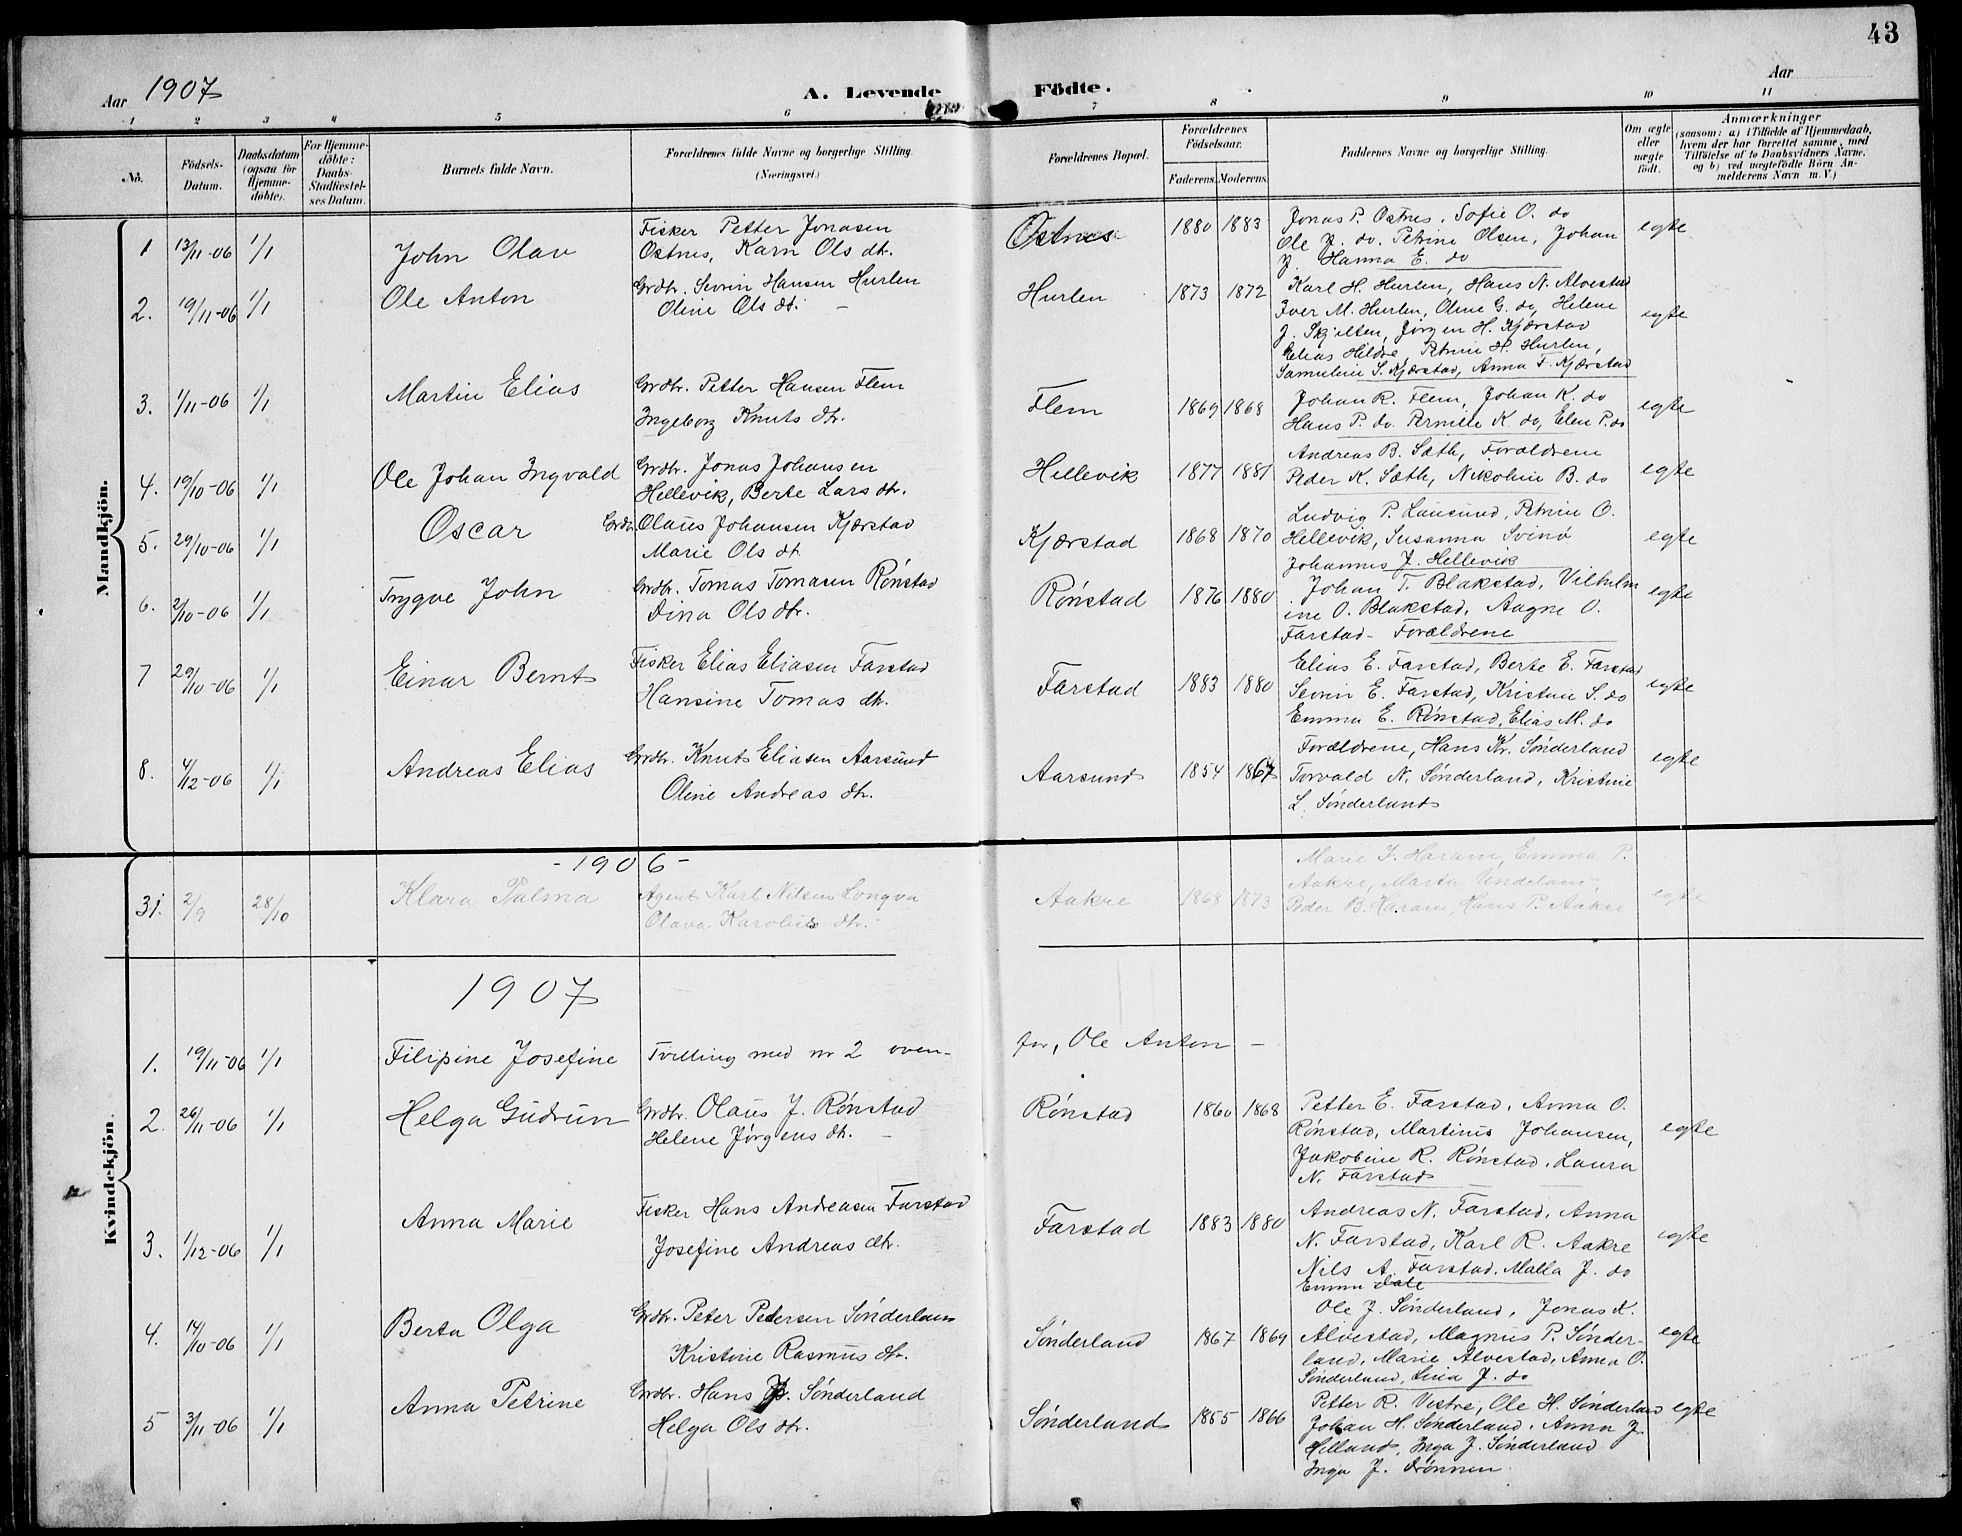 43
Aar 1907
A. Levende Födte.
Aar
1 2 3 4 5 6 7 8 9 10 11
No.
Födsels-Datum.
Daabsdatum (ogsaa för Hjemme-döbte).
For Hjemme-döbte: Daabs-Stadfæstel-ses Datum.
Barnets fulde Navn.
Forældrenes fulde Navne og borgerlige Stilling. (Næringsvei.)
Forældrenes Bopæl.
Forældrenes Födselsaar.
Faderens. Moderens.
Faddernes Navne og borgerlige Stilling.
Om ægte eller uægte födt.
Anmærkninger
(saasom: a) i Tilfælde af Hjemmedaab,
hvem der har forrettet samme, med
Tilföielse af to Daabsvidners Navne,
og b) ved uægtefödte Börn An-
melderens Navn m. V.)
Mandkjön.
1 13/11-06 1/1 John Olav
Fisker Petter Jonasen
Ostnes, Karn Ols dt.
Ostnes 1880 1883
Jonas P. Ostnes, Sofie O. do
Ole J. do. Petrine Olsen, Johan
J. Hanna E. do
egte
2. 19/11-06 1/1 Ole Anton
Grdbr. Sevrin Hansen Hurlen
Oline Ols dt. –
Hurlen 1873 1872
Karl H. Hurlen, Hans N. Alvestad
Iver M. Hurlen, Oline G. do, Helene
J. Skjelten, Jörgen H. Kjærstad
Elias Hildre, Petrine H. Hurlen,
Samuline S. Kjærstad, Anna F. Kjærstad
egte
3. 1/11-06 1/1 Martin Elias
Grdbr. Petter Hansen Flem
Ingeborg Knuts dtr.
Flem 1869 1868
Johan R. Flem, Johan K. do
Hans P. do. Pernille K. do, Elen P. do
egte
4. 19/10-06 1/1 Ole Johan Ingvald
Grdbr. Jonas Johansen
Hellevik, Berte Lars dtr.
Hellevik 1877 1881
Andreas B. Sæth, Forældrene
Peder K. Sæth, Nikoline B. do
egte
5. 29/10-06 1/1 Oscar
Grdbr. Olaus Johansen Kjærstad
Marie Ols dt
Kjærstad 1868 1870
Ludvig P. Lausund, Petrine O.
Hellevik, Susanna Svinö
Johannes J. Hellevik
egte
6. 2/10-06 1/1 Trygve John
Grdbr. Tomas Tomasen Rönstad
Dina Ols dtr.
Rönstad 1876 1880
Johan T. Blakstad, Vilhelm
ine O. Blakstad, Aagne O.
Farstad - Forældrene
egte
7 29/10-06 1/1 Einar Bernt
Fisker Elias Eliasen Farstad
Hansine Tomas dtr.
Farstad 1883 1880
Elias E. Farstad, Berte E. Farstad
Sevrin E. Farstad, Kristine S. do
Emma E. Rönstad, Elias M. do
egte
8. 4/12-06 1/1 Andreas Elias
Grdbr. Knut Eliasen Aarsund
Oline Andreas dtr.
Aarsund 1854 1867
Forældrene, Hans Kr. Sönderland
Torvald N. Sönderland, Kristine
L. Sönderland
egte
Kvindekjön.
-1906-
31. 2/9 28/10 Klara Palma
Agent Karl Nilsen Longva
Olava Karolius dtr.
Aakre 1868 1873
Marie J. Haram, Emma P.
Aakre, Marta Undeland,
Peder B. Haram, Hans P. Aakre
egte
1907
1. 19/11-06 1/1 Filipine Josefine
Tvilling med nr 2 oven-
for, Ole Anton –
2. 26/11-06 1/1 Helga Gudrun
Grdbr. Olaus J. Rönstad
Helene Jörgens dt. –
Rönstad 1860 1868
Petter E. Farstad, Anna O.
Rönstad, Martinus Johansen,
Jakobine R. Rönstad, Laura
N. Farstad
egte
3. 1/12-06 1/1 Anna Marie
Fisker Hans Andreasen Farstad
Josefine Andreas dtr.
Farstad 1883 1880
Andreas N. Farstad, Anna
N. Farstad, Karl R. Aakre
Nils A. Farstad, Malla J. do
Emma
egte
4. 14/10-06 1/1 Berta Olga
Grdbr. Peter Pedersen Sönderland
Kristine Rasmus dtr.
Sönderland 1867 1869
Ole J. Sönderland, Jonas K.
Alvestad, Magnus P. Sönder-
land, Marie Alvestad, Anna O.
Sönderland, Lina J. do
egte
5 3/11-06 1/1 Anna Petrine
Grdbr. Hans P. Sönderland
Helga Ols dtr.
Sönderland 1855 1866
Petter R. Vestre, Ole H. Sönderland
Johan H. Sönderland, Anna J.
Helland, Inga J. Sönderland
Inga J. Drönnen
egte